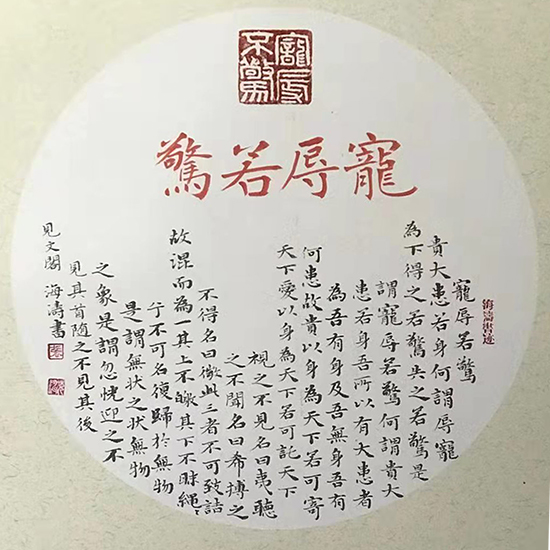 寵辱不驚
寵辱若驚
海濤書迹
寵辱若驚
貴大患若身何謂寵
為下得之若驚失之若驚是
謂寵辱若驚何謂貴大
患若身吾所以有大患者
為吾有身及吾無身吾有
何患故貴以身為天下若可寄
天下愛以身為天下若可託天下
視之不見名曰夷聽
之不聞名曰希搏之
不得名曰微此三者不可致詰
故混而為一其上不皦其下不昧繩々
兮不可名復歸於無物
是謂無状之状無物
之象是謂忽恍迎之不
見其首随之不見其後
見文閣 海濤書